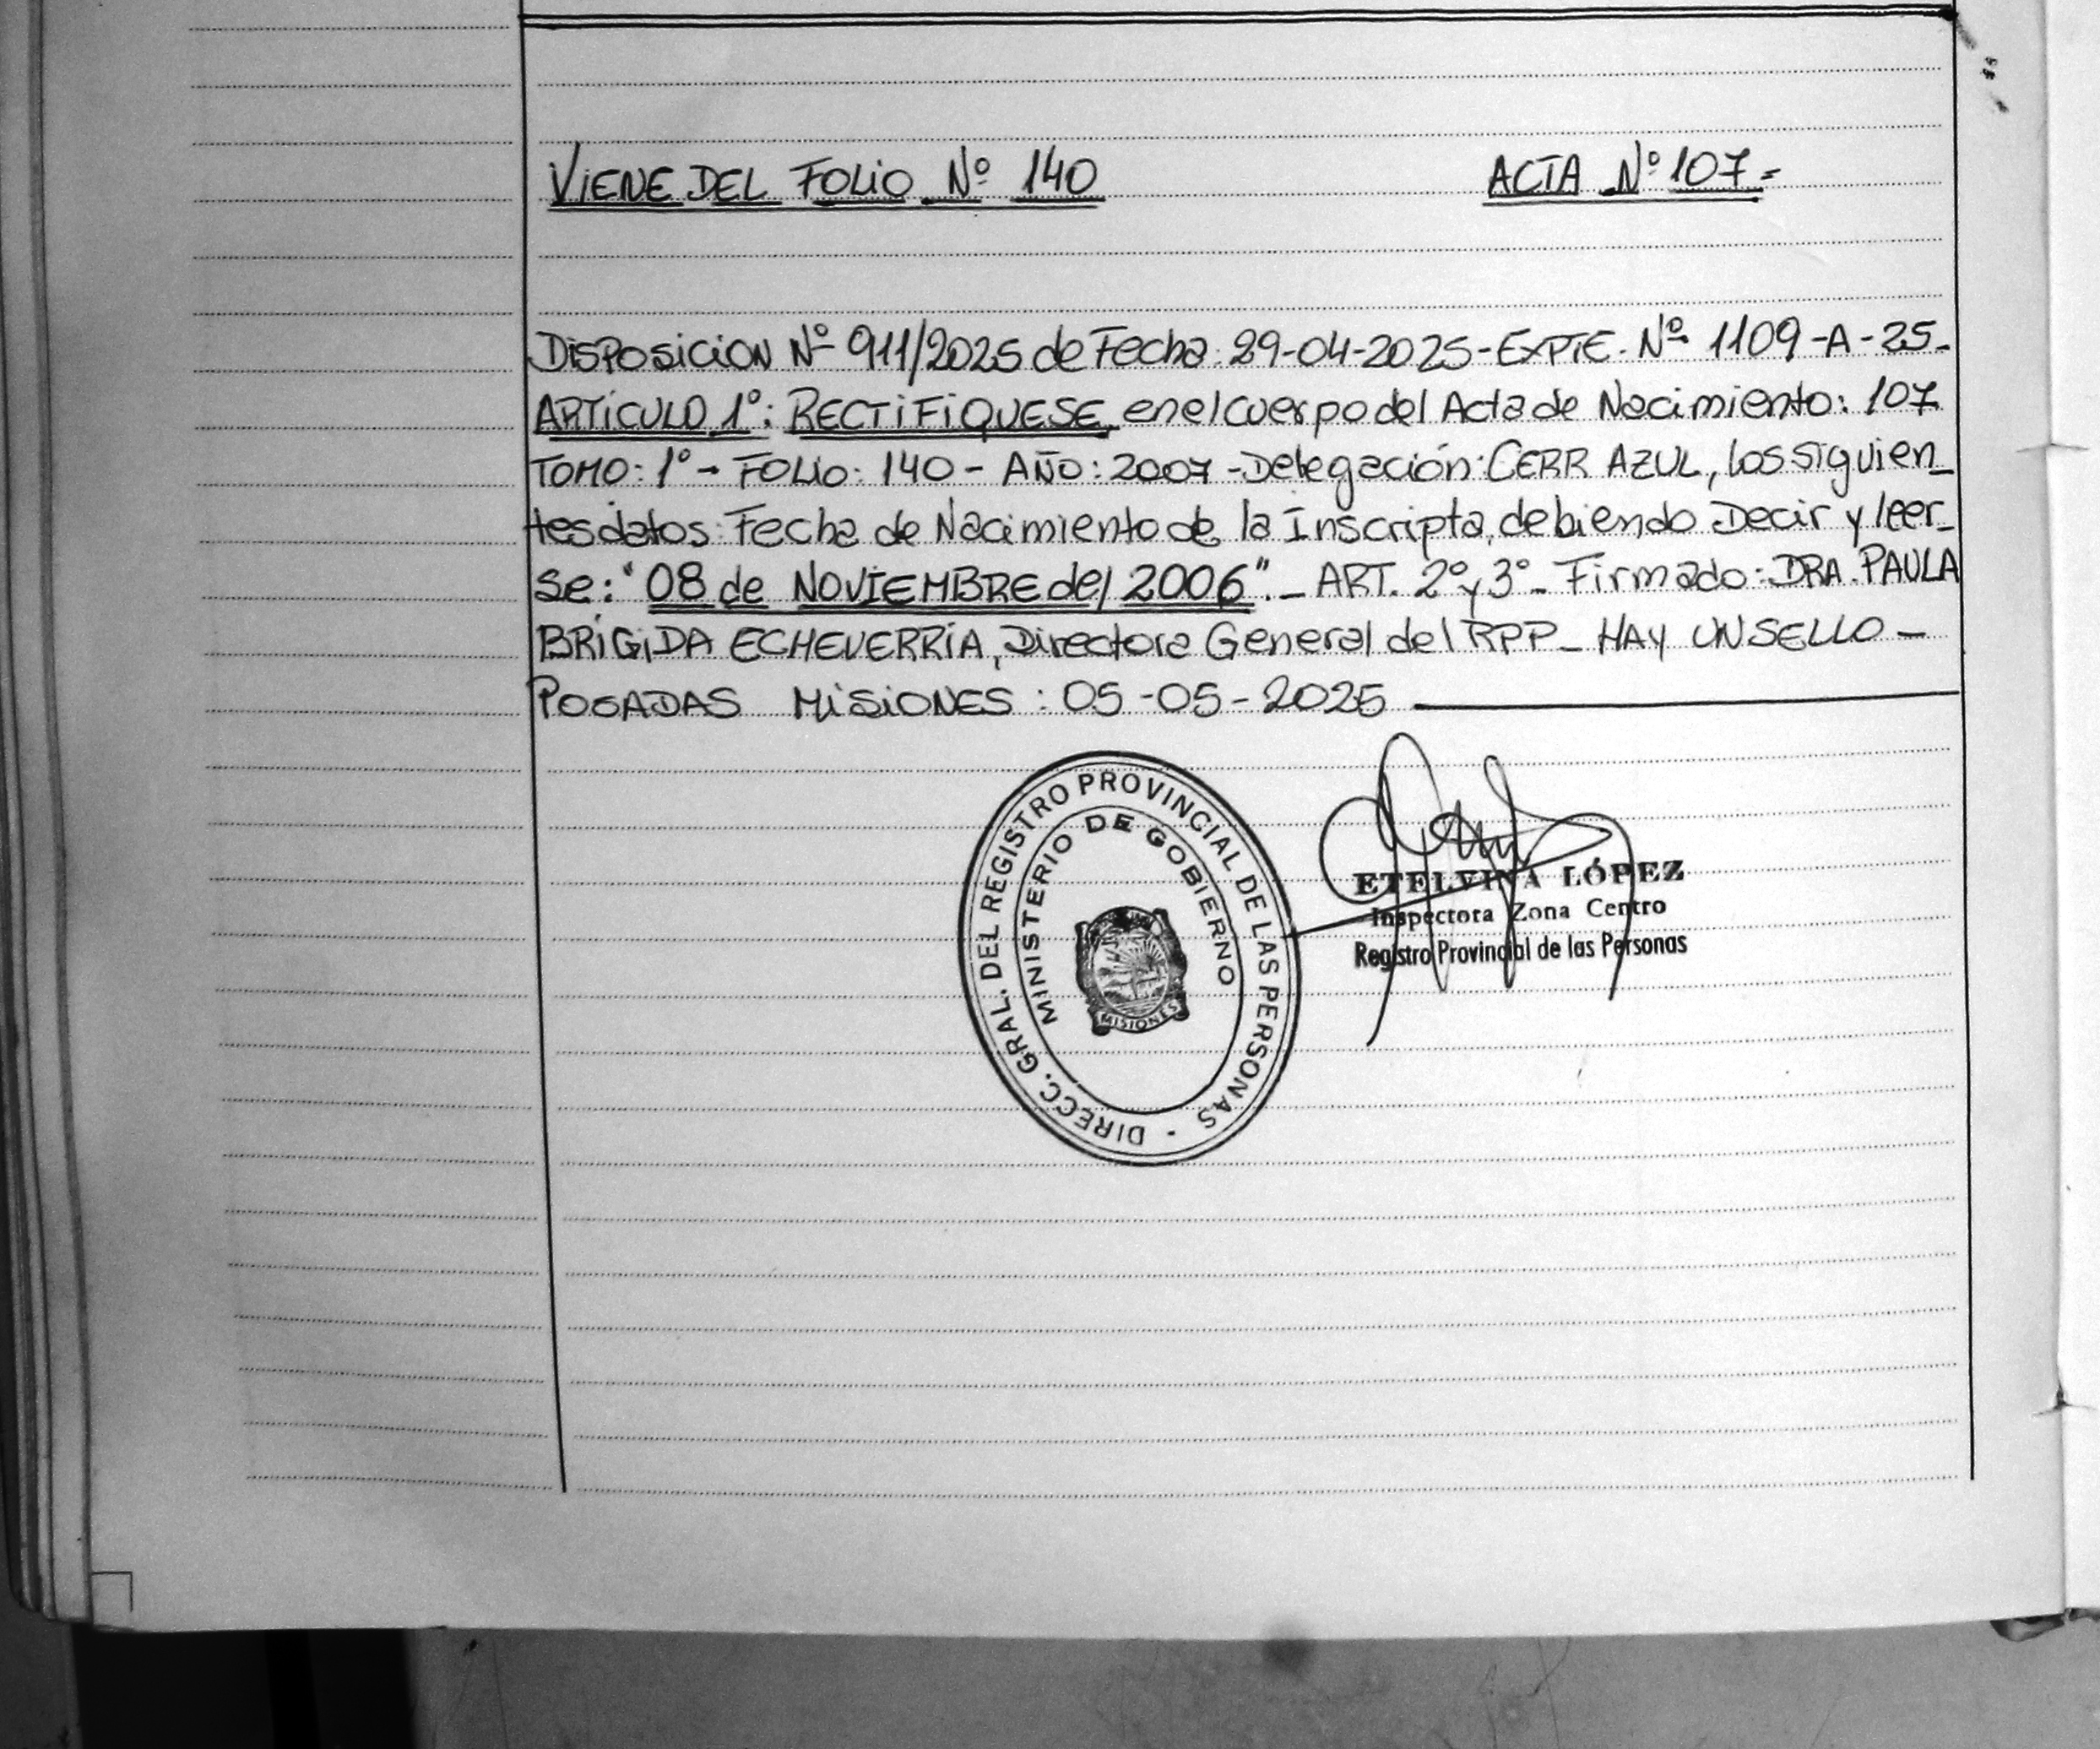 VIENE DEL FOLIO Nº 140
ACTA Nº 107=
DISPOSICION Nº 911/2025 de Fecha: 29-04-2025-EXPTE. Nº 1109-A-25-
ARTICULO 1°: RECTIFIQUESE, en el cuerpo del Acta de Nacimiento: 107
TOMO: 1° - FOLIO: 140 - AÑO: 2007 - Delegación: CERR AZUL, los siguien_
tes datos: Fecha de Nacimiento de la Inscripta, debiendo Decir y leer_
se: "08 de NOVIEMBRE del 2006". _ ART. 2° y 3° _ Firmado: DRA. PAULA
BRIGIDA ECHEVERRIA, Directora General del RPP _ HAY UN SELLO _
POSADAS MISIONES : 05-05-2025
DIRECC. GRAL. DEL REGISTRO PROVINCIAL DE LAS PERSONAS -
MINISTERIO DE GOBIERNO
MISIONES
ETELVINA LÓPEZ
Inspectora Zona Centro
Registro Provincial de las Personas